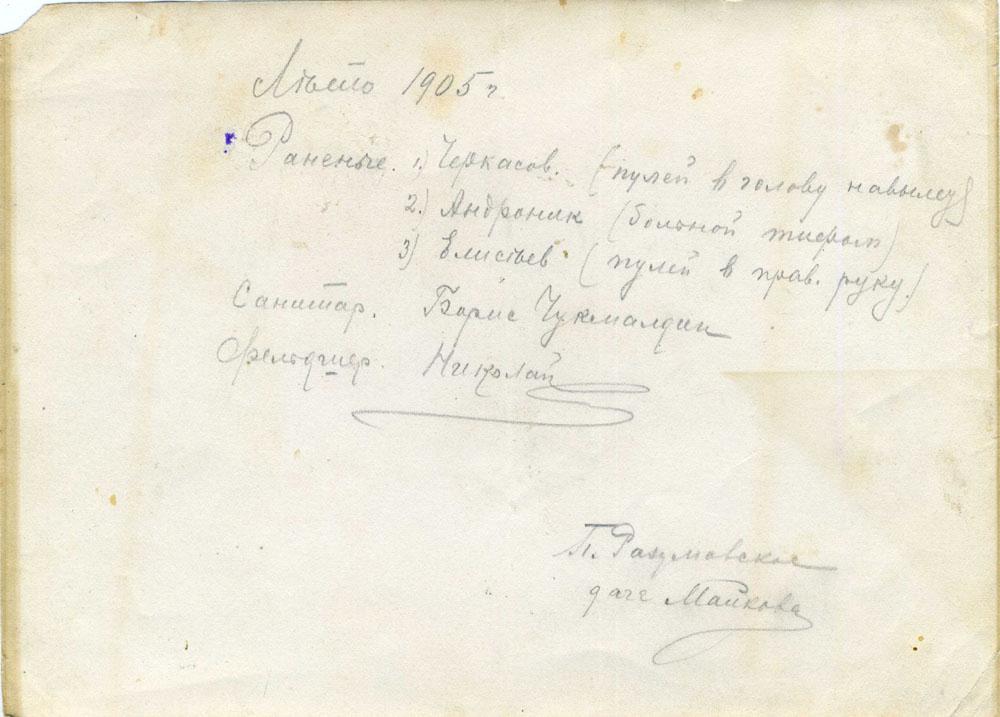 Лѣто 1905 г.
Раненые. 1) Черкасов. (пулей в голову навылет)
2.) Андроник (больной тифом)
3) Елисеев (пулей в прав. руку.)
Санитар. Борис Чукмалдин
Фельдшер. Николай
П. Разумовское
дача Майкова